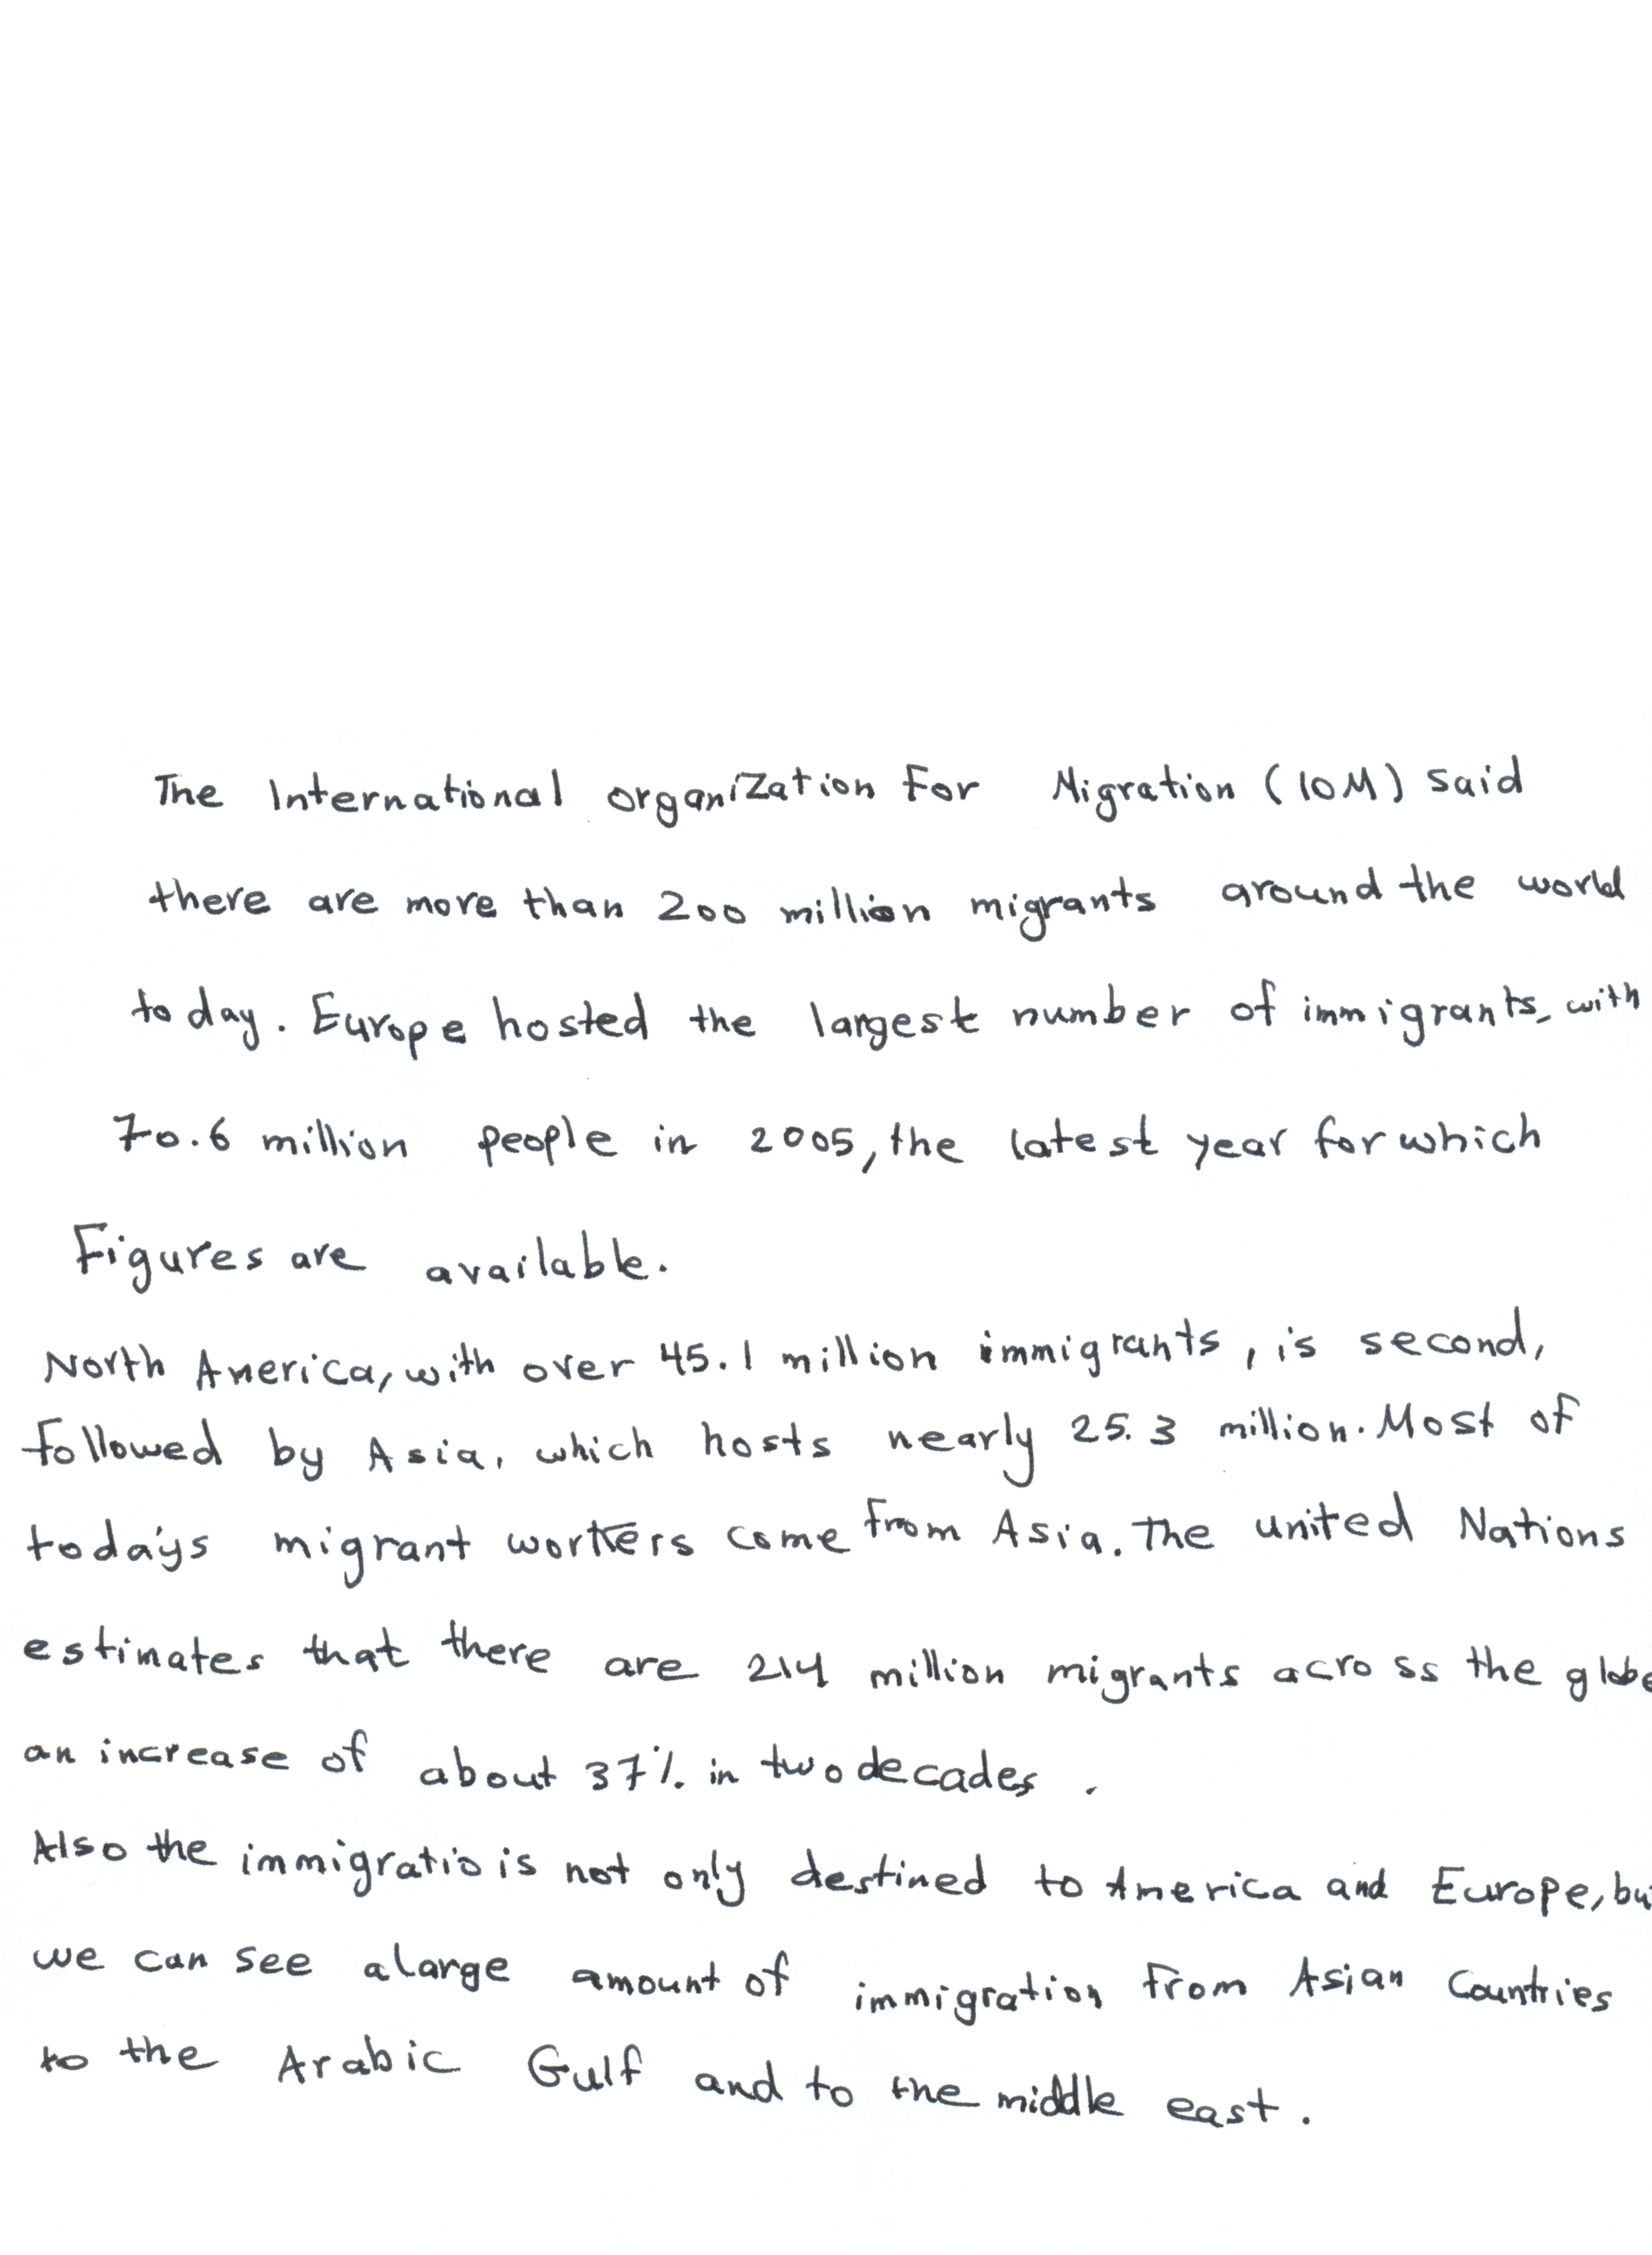 The International organization For Migration (IOM) said
there are more than 200 million migrants around the world
today. Europe hosted the largest number of immigrants, with
70.6 million people in 2005, the latest year for which
Figures are available.
North America, with over 45.1 million immigrants, is second,
followed by Asia, which hosts nearly 25.3 million. Most of
today's migrant workers come from Asia. The united Nations
estimates that there are 214 million migrants across the globe
an increase of about 37% in two decades.
Also the immigratio is not only destined to America and Europe, bu
we can see a large amount of immigration From Asian Countries
to the Arabic Gulf and to the middle east.